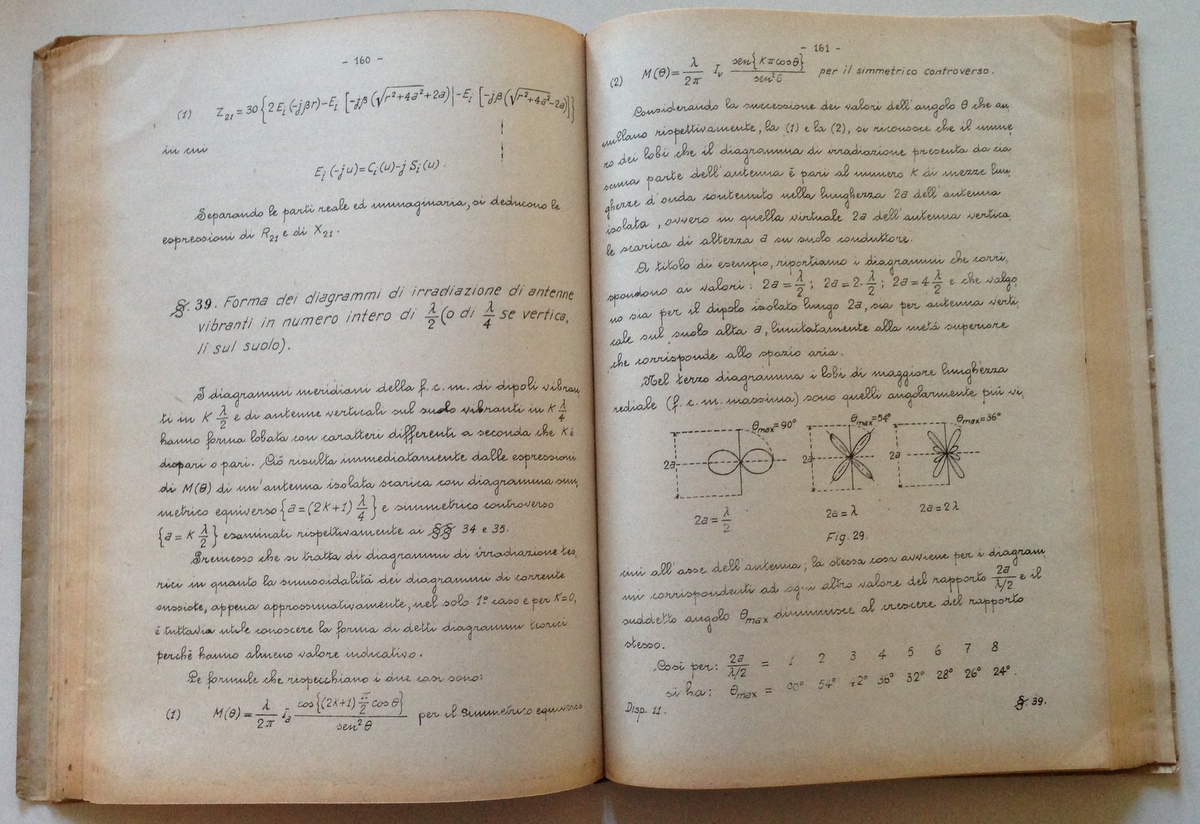 - 160 -
(1) Z₂₁ = 30 {2Eᵢ(-jβr)-Eᵢ [-jβ(√(r²+4a²)+2a)]-Eᵢ [-jβ(√(r²+4a²)-2a)]}
in cui
Eᵢ(-ju)=Cᵢ(u)-j Sᵢ(u).
Separando le parti reale ed immaginaria, si deducono le
espressioni di R₂₁ e di X₂₁.
§. 39. Forma dei diagrammi di irradiazione di antenne
vibranti in numero intero di λ/2 (o di λ/4 se vertica,
li sul suolo).
I diagrammi meridiani della f.c.m. di dipoli vibran
ti in K λ/2 e di antenne verticali sul suolo vibranti in K λ/4
hanno forma lobata con caratteri differenti a seconda che K è
dispari o pari. Ciò risulta immediatamente dalle espressioni
di M(θ) di un'antenna isolata scarica con diagramma sim,
metrico equiverso {a=(2K+1) λ/4} e simmetrico controverso
{a= K λ/2} esaminati rispettivamente ai §§ 34 e 35.
Premesso che si tratta di diagrammi di irradiazione teo,
rici in quanto la sinusoidalitá dei diagrammi di corrente
sussiste, appena approssimativamente, nel solo 1º caso e per K=0,
è tuttavia utile conoscere la forma di detti diagrammi teorici
perchè hanno almeno valore indicativo.
Le formule che rispecchiano i due casi sono:
(1) M(θ)= λ/2π Iₐ cos{(2K+1) π/2 cos θ}/sen² θ per il simmetrico equiverso
- 161 -
(2) M(θ)= λ/2π Iᵥ sen{Kπcosθ}/sen² θ per il simmetrico controverso.
Considerando la successione dei valori dell'angolo θ che an,
nullano rispettivamente, la (1) e la (2), si riconosce che il nume,
ro dei lobi che il diagramma di irradiazione presenta da cia
scuna parte dell'antenna è pari al numero K di mezze lun,
ghezze d'onda contenuto nella lunghezza 2a dell'antenna
isolata, ovvero in quella virtuale 2a dell'antenna vertica,
le scarica di altezza a su suolo conduttore.
A titolo di esempio, riportiamo i diagrammi che corri,
spondono ai valori: 2a = λ/2; 2a = 2· λ/2; 2a = 4 λ/2 e che valgo,
no sia per il dipolo isolato lungo 2a, sia per antenna verti,
cale sul suolo alta a, limitatamente alla metá superiore
che corrisponde allo spazio aria.
Nel terzo diagramma i lobi di maggiore lunghezza
radiale (f.c.m. massima) sono quelli angolarmente più vi,
θmax=90° θmax=54° θmax=36°
2a 2a 2a
2a = λ/2 2a = λ 2a = 2λ
Fig. 29.
cini all'asse dell'antenna; la stessa cosa avviene per i diagram
mi corrispondenti ad ogni altro valore del rapporto 2a/λ/2 e il
suddetto angolo θmax diminuisce al crescere del rapporto
stesso.
Così per: 2a/λ/2 = 1 2 3 4 5 6 7 8
si ha: θmax = 90° 54° 42° 36° 32° 28° 26° 24°.
Disp. 11. § 39.